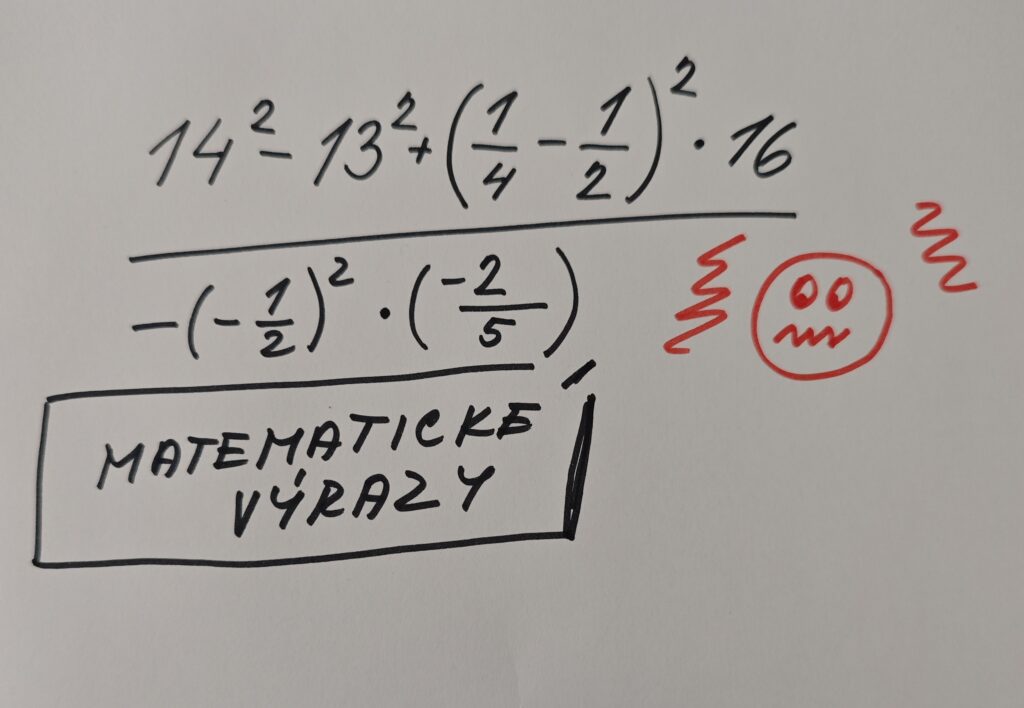 14² - 13² + (1/4 - 1/2)² · 16
-(-1/2)² · (-2/5)
MATEMATICKÉ
VÝRAZY